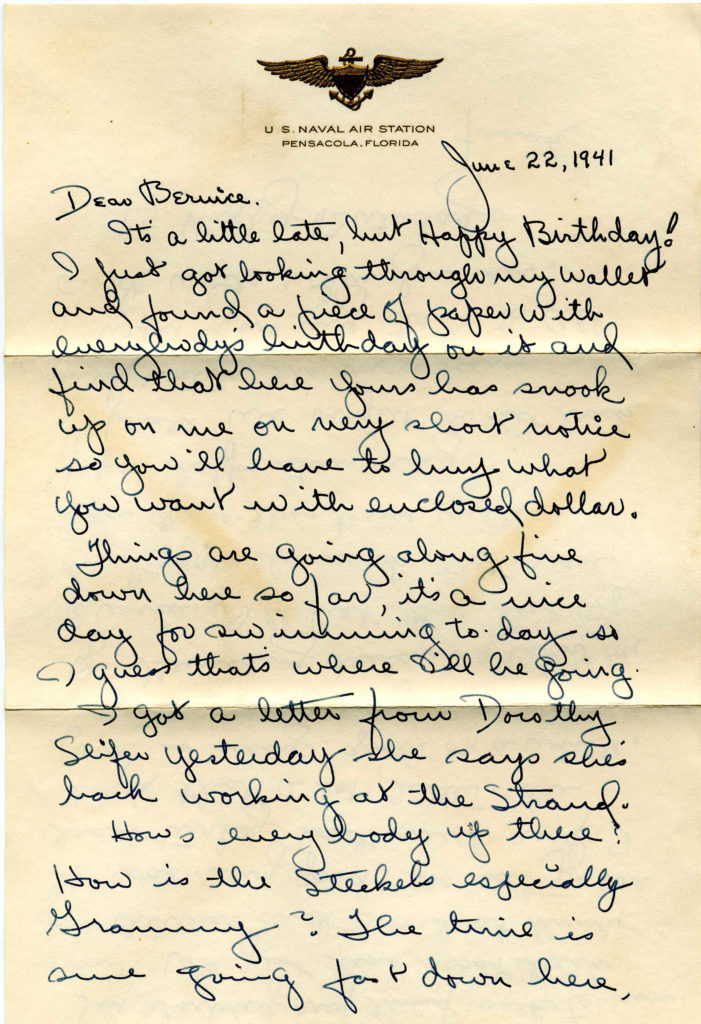 U. S. NAVAL AIR STATION
PENSACOLA, FLORIDA
June 22, 1941
Dear Bernice.
It's a little late, but Happy Birthday!
I just got looking through my wallet
and found a piece of paper with
everybody's birthday on it and
find that here yours has snook
up on me on very short notice
so you'll have to buy what
you want with enclosed dollar.
Things are going along fine
down here so far, it's a nice
day for swimming to-day so
I guess thats where I'll be going.
I got a letter from Dorothy
Seifer yesterday she says she's
back working at the Strand.
Hows everybody up there?
How is the Steckels especially
Grammy? The time is
sure going fast down here,